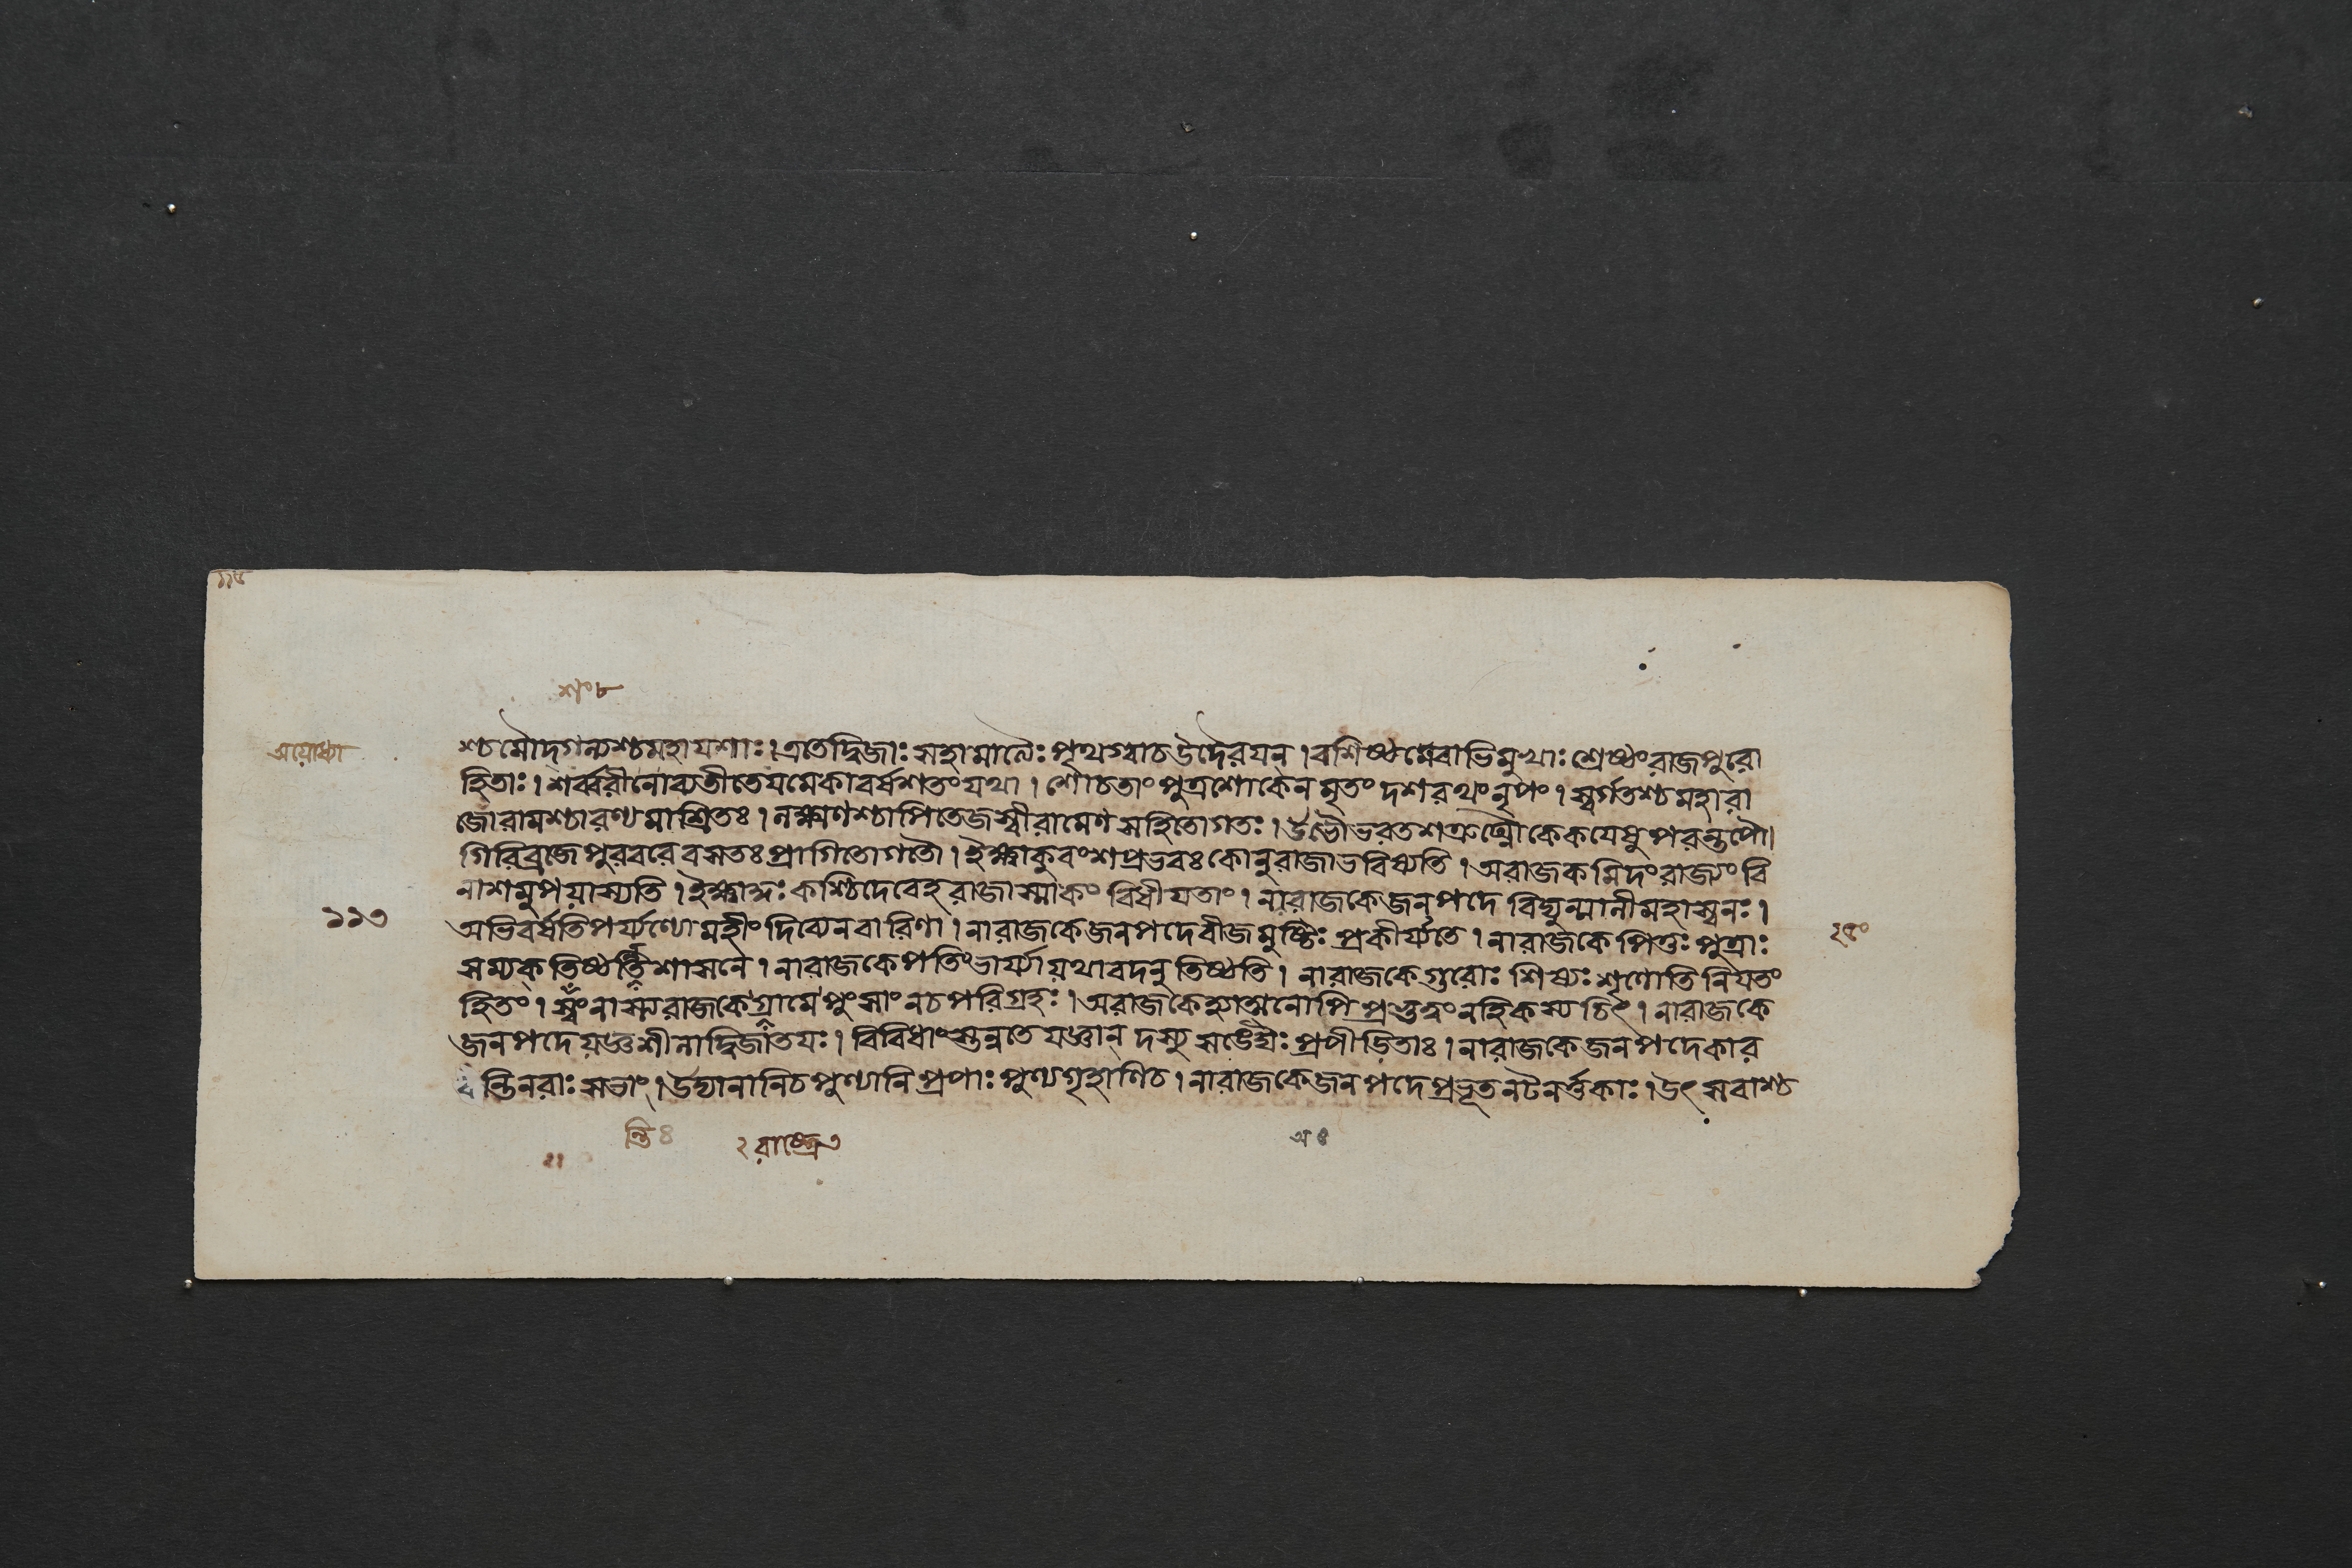 ১১৫
শং ৮
অযোধ্যা
শ্চমৌদ্গল্যশ্চমহাযশাঃ। এতেদ্বিজাঃ সহামাত্যৈঃ পৃথগ্বাচউদৈরযন্ । বশিষ্ঠমেবাভিমুখাঃ শ্রেষ্ঠংরাজপুরো
হিতাঃ। শর্ব্বরীনোব্যতীতেযমেকাবর্ষশতংযথা । শোচতাং পুত্রশোকেনমৃতং দশরথংনৃপং । স্বর্গতশ্চমহারা
জোরামশ্চারণ্যমাশ্রিতঃ । লক্ষ্মণশ্চাপিতেজস্বীরামেণসহিতোগতঃ । উভৌভরতশত্রুঘ্নৌকেকযেষুপরন্তপৌ।
গিরিব্রজেপুরবরেবসতঃ প্রাগিতোগতৌ । ইক্ষ্বাকুবংশপ্রভবঃ কোনুরাজাভবিষ্যতি । অরাজকমিদংরাজ্যং বি
নাশমুপযাস্যতি । ইক্ষ্বাকূঃ কশ্চিদেবেহরাজাস্মাকং বিধীযতাং । নারাজকেজনপদে বিদ্যুন্মালীমহাস্বনঃ ।
১১৩
অভিবর্ষতিপর্য্যণ্যোমহীং দিব্যেনবারিণা । নারাজকেজনপদেবীজমুষ্টিঃ প্রকীর্য্যতে । নারাজকেপিতুঃ পুত্রাঃ
২৫০
সম্যক্ তিষ্ঠন্তিশাসনে । নারাজকেপতিংভার্য্যাযথাবদনুতিষ্ঠতি । নারাজকেগুরোঃ শিষ্যঃ শৃণোতিনিযতং
হিতং । স্বংনাস্ত্যরাজকেগ্রামেপুংসাংনচপরিগ্রহঃ । অরাজকেহ্যাত্মনোপিপ্রভুত্বংনহিকস্যচিৎ । নারাজকে
জনপদেযজ্ঞশীলাদ্বিজাতযঃ । বিবিধাংস্তন্বতেযজ্ঞান্ দস্যুসঙ্ঘৈঃ প্রপীডিতাঃ । নারাজকেজনপদেকার
যন্তিনরাঃ সভাং । উদ্যানানিচপুণ্যানিপ্রপাঃ পুণ্যগৃহাণিচ । নারাজকেজনপদেপ্রভূতনটনর্ত্তকাঃ । উৎসবাশ্চ
ন্তি ৪
২ রাষ্ট্রে ৩